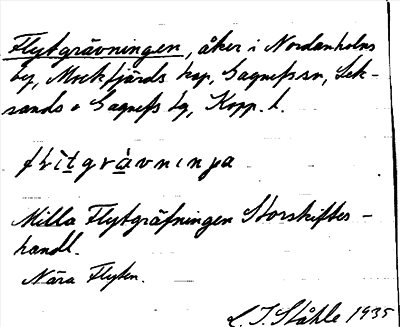 Flytgrävningen, åker i Nordanholns
by, Mockfjärds kap, Gagnefs sn, Lek-
sands o Gagnefs tg, Kopp. l.
Milla Flytgräfningen Storskiftes-
handl.
Nära Flyten.
L. I. Ståhle 1935